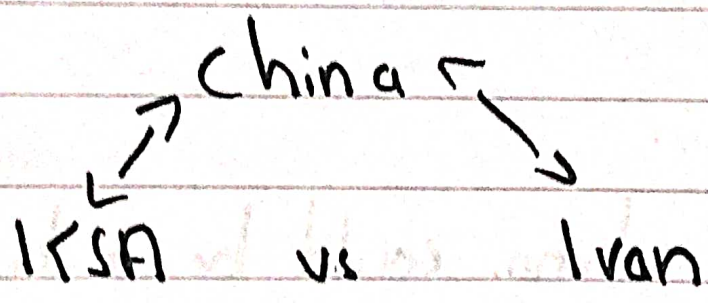 China
KSA vs Iran